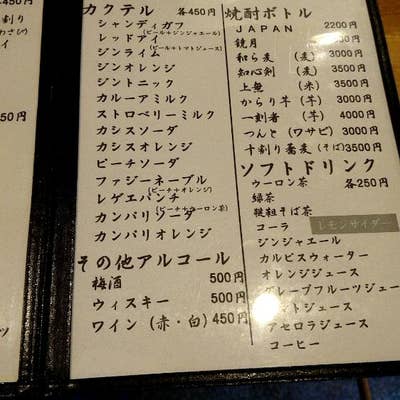 450円
割り
円
カクテル 各450円
シャンディガフ
(ビール+ジンジャエール)
レッドアイ
(ビール+トマトジュース)
ジンライム
ジンオレンジ
ジントニック
カルーアミルク
ストロベリーミルク
カシスソーダ
カシスオレンジ
ピーチソーダ
ファジーネーブル
(ピーチ+オレンジ)
レゲエパンチ
(ピーチ+ウーロン茶)
カンパリソーダ
カンパリオレンジ
その他アルコール
梅酒 500円
ウィスキー 500円
ワイン (赤・白) 450円
焼酎ボトル
JAPAN 2200円
鏡月 円
和ら麦 (麦) 3000円
知心剣 (麦) 3500円
上 (米) 3500円
からり芋 (芋) 3000円
一刻者 (芋) 4000円
つんと (ワサビ) 3000円
十割り蕎麦 (そば) 3500円
ソフトドリンク
ウーロン茶 各250円
緑茶
韃靼そば茶
コーラ レモンサイダー
ジンジャエール
カルピスウォーター
オレンジジュース
グレープフルーツジュー
トマトジュース
アセロラジュース
コーヒー